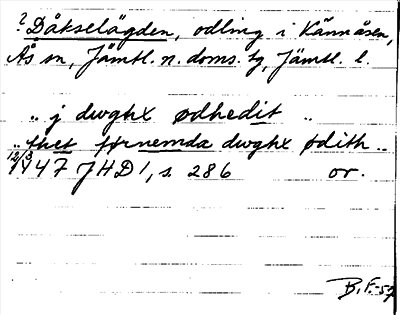 ? Dåkselägden, odling i Kännåsen,
Ås sn, Jämtl. n. doms. tg, Jämtl. l.
.. j dwghx ødhedit ..
.. thet førnemda dwghx ødith ..
12/3 1447 JHD 1, s. 286 or.
B. F-57